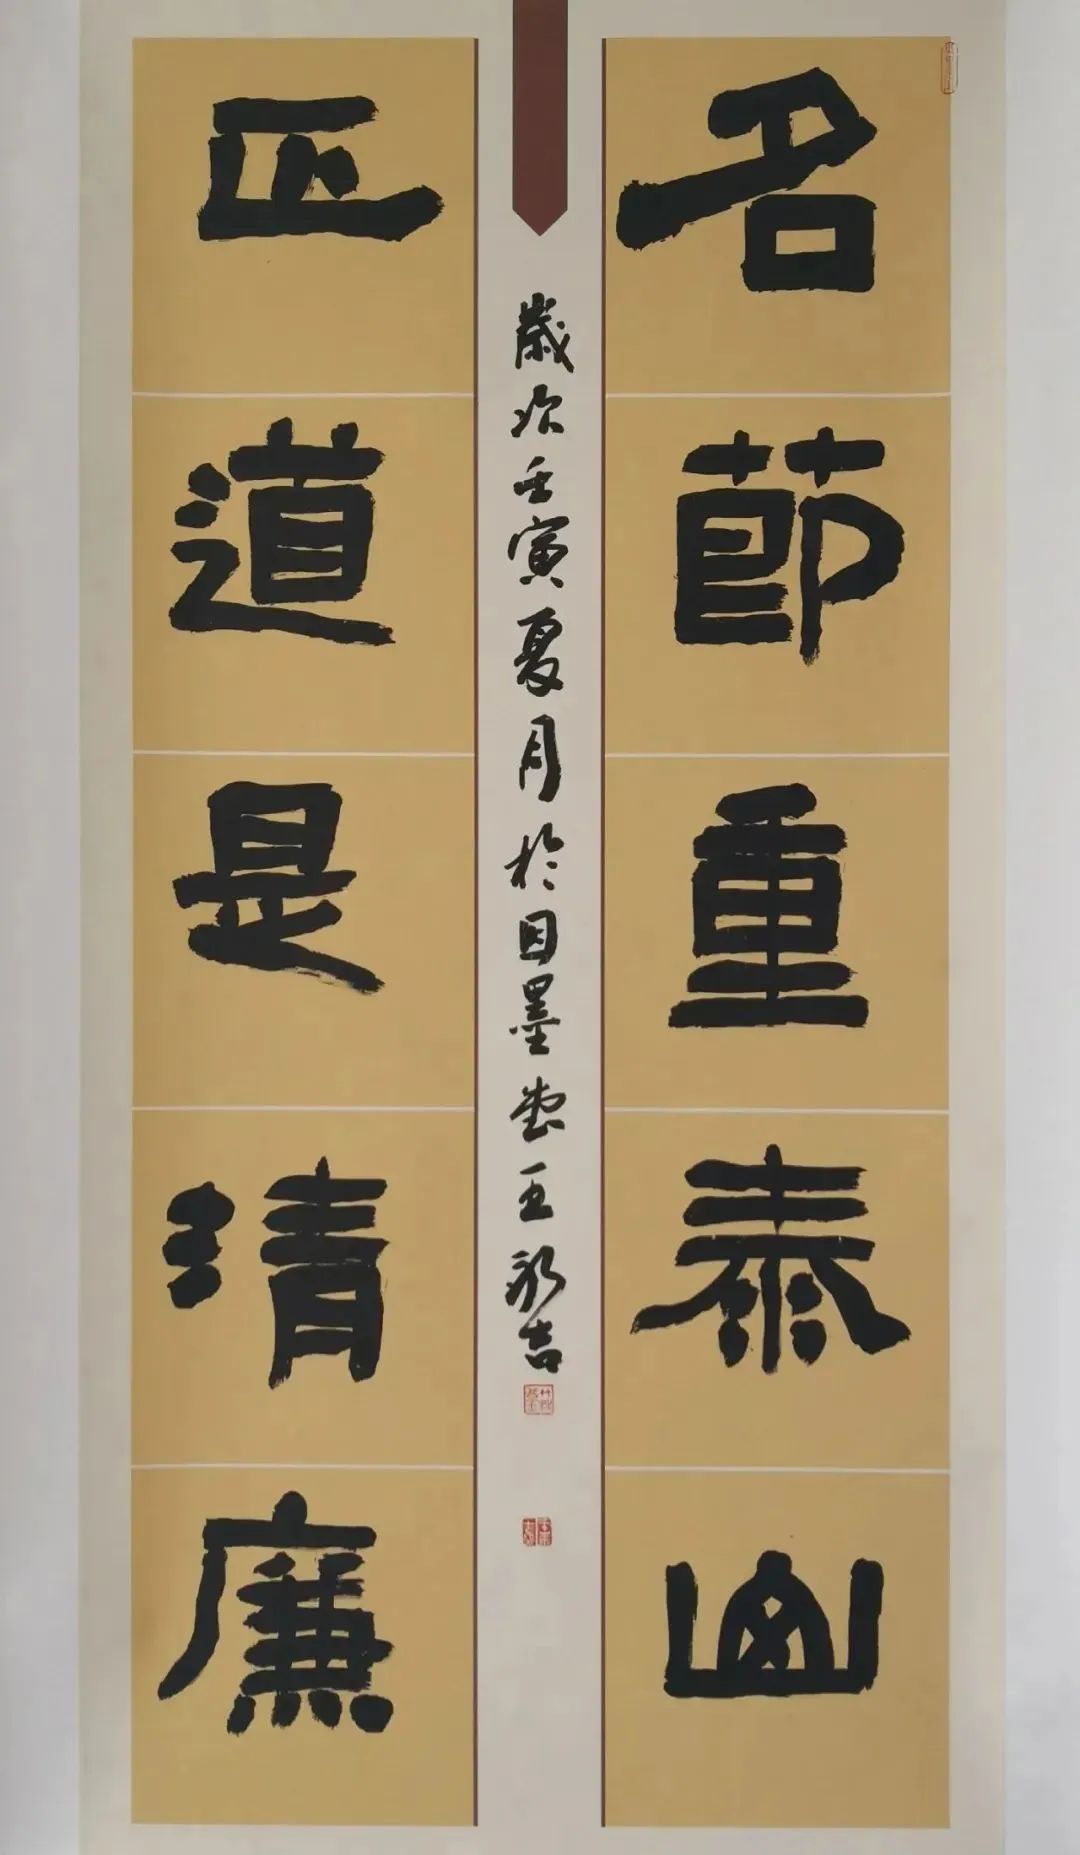 名節重泰山
正道是清廉
歲次壬寅夏月於因墨堂王永吉